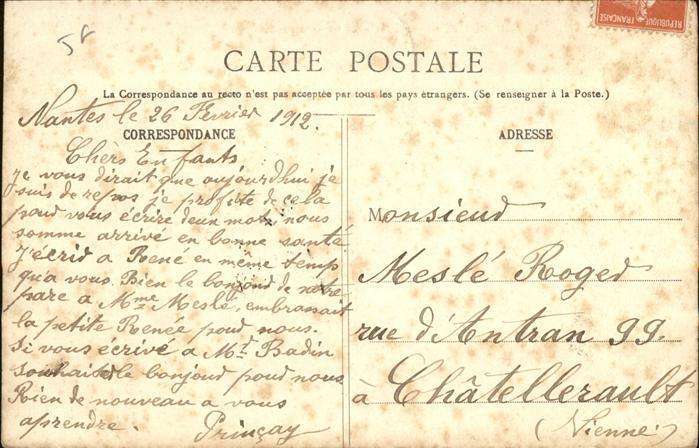 58
RÉPUBLIQUE FRANÇAISE
CARTE POSTALE
La Correspondance au recto n'est pas acceptée par tous les pays étrangers. (Se renseigner à la Poste.)
Nantes le 26 Fevrier 1912.
CORRESPONDANCE
Chèrs Enfants
Je vous dirait que aujourd'hui je
suis de repos je profite de cela
pour vous écrire deux mots nous
somme arrivé en bonne santé
J'écrid a René en même temp
qu'a vous. Bien le bonjour de notre
pare a Mme Meslé, embrassait
la petite Renée pour nous.
Si vous écrivé a Mr Badin
souhaité le bonjour pour nous
Rien de nouveau a vous
aprendre. Prinçay
ADRESSE
Monsieur
Meslé Roger
rue d'Antran 99.
à Châtellerault
(Vienne)